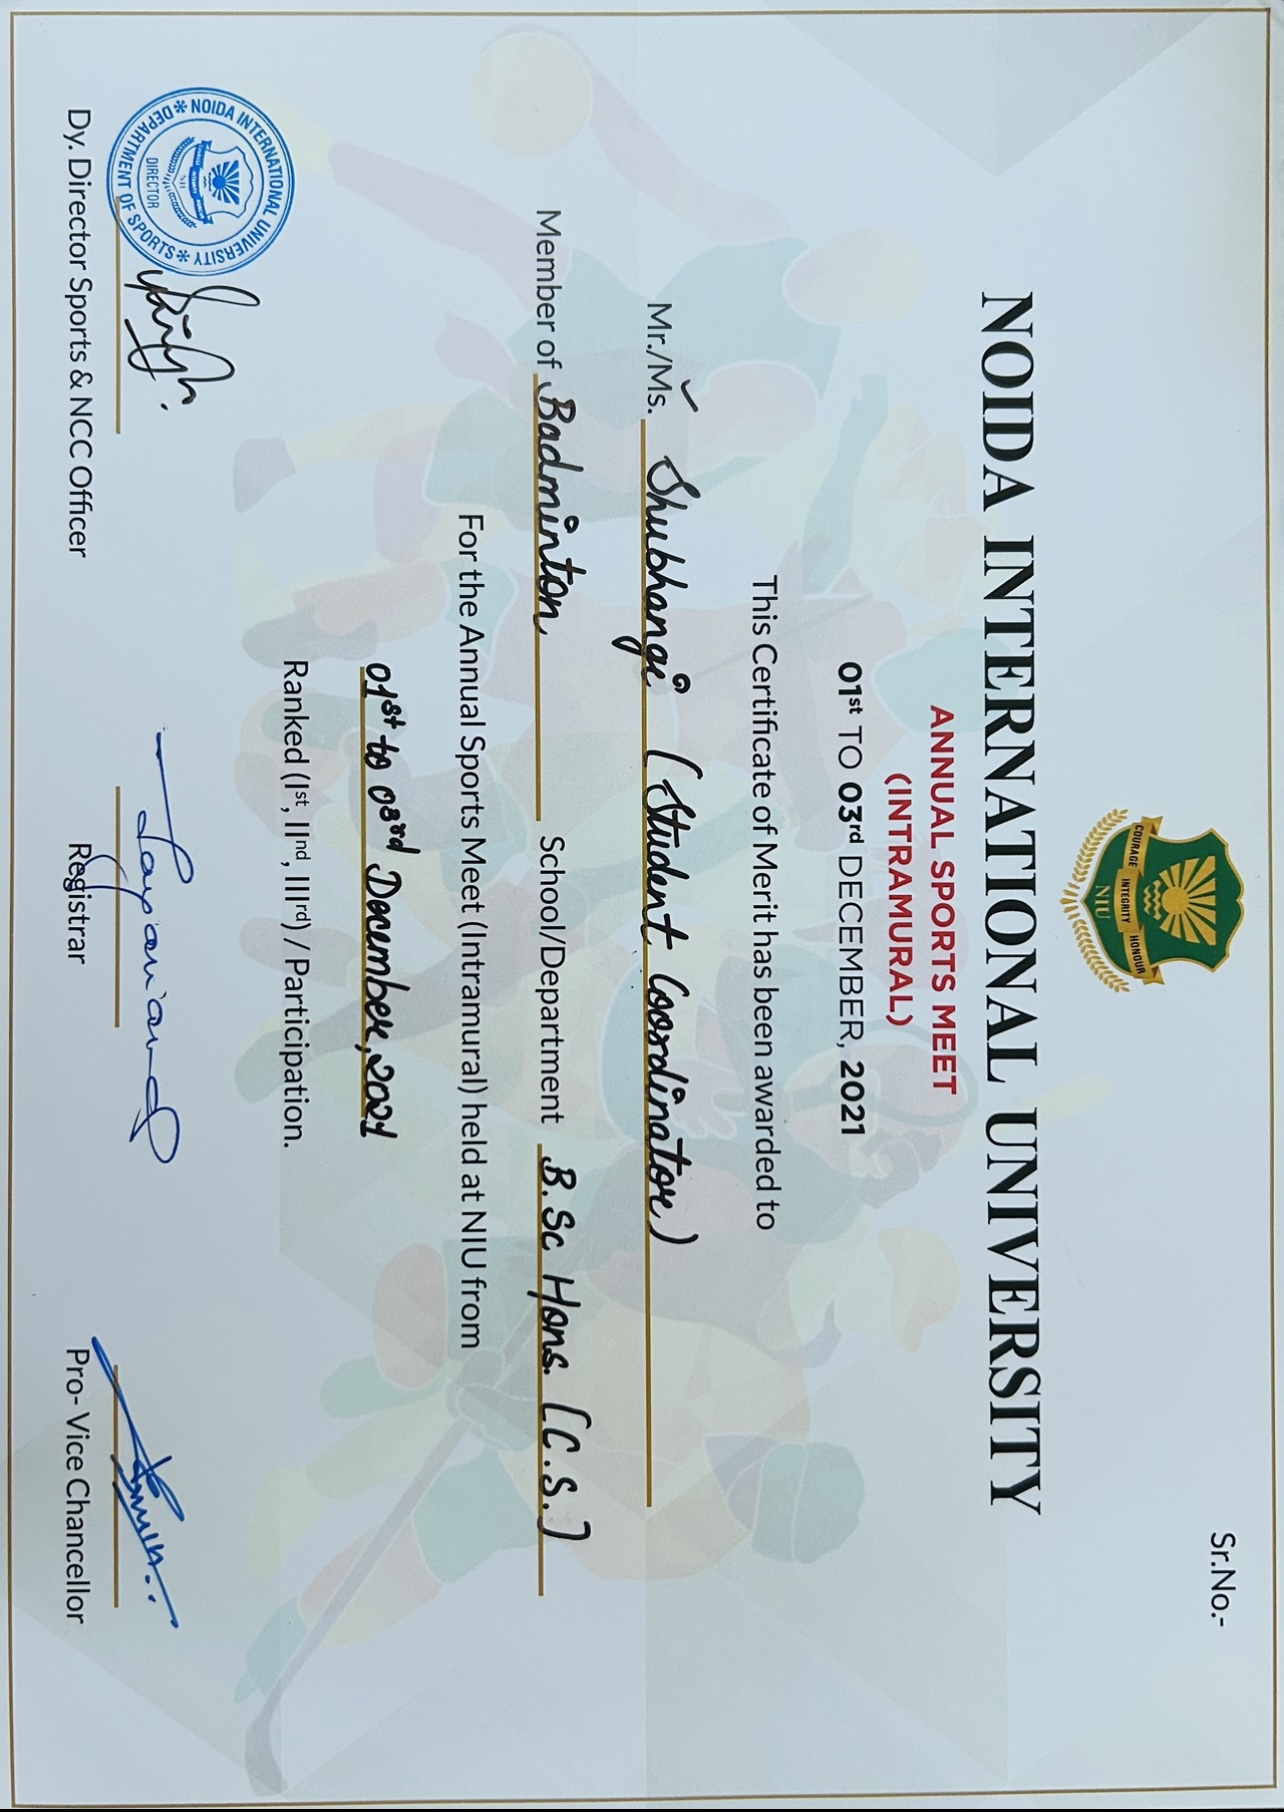 Sr.No.-
COURAGE INTEGRITY HONOUR
NIU
NOIDA INTERNATIONAL UNIVERSITY
ANNUAL SPORTS MEET
(INTRAMURAL)
01st TO 03rd DECEMBER, 2021
This Certificate of Merit has been awarded to
Mr./Ms. Shubhangi (Student Coordinator)
Member of Badminton School/Department B.Sc Hons. [C.S.]
For the Annual Sports Meet (Intramural) held at NIU from
01st to 03rd December, 2021
Ranked (Ist, IInd, IIIrd) / Participation.
NOIDA INTERNATIONAL UNIVERSITY
COURAGE INTEGRITY HONOUR
NIU
DIRECTOR
DEPARTMENT OF SPORTS
Dy. Director Sports & NCC Officer Registrar Pro- Vice Chancellor